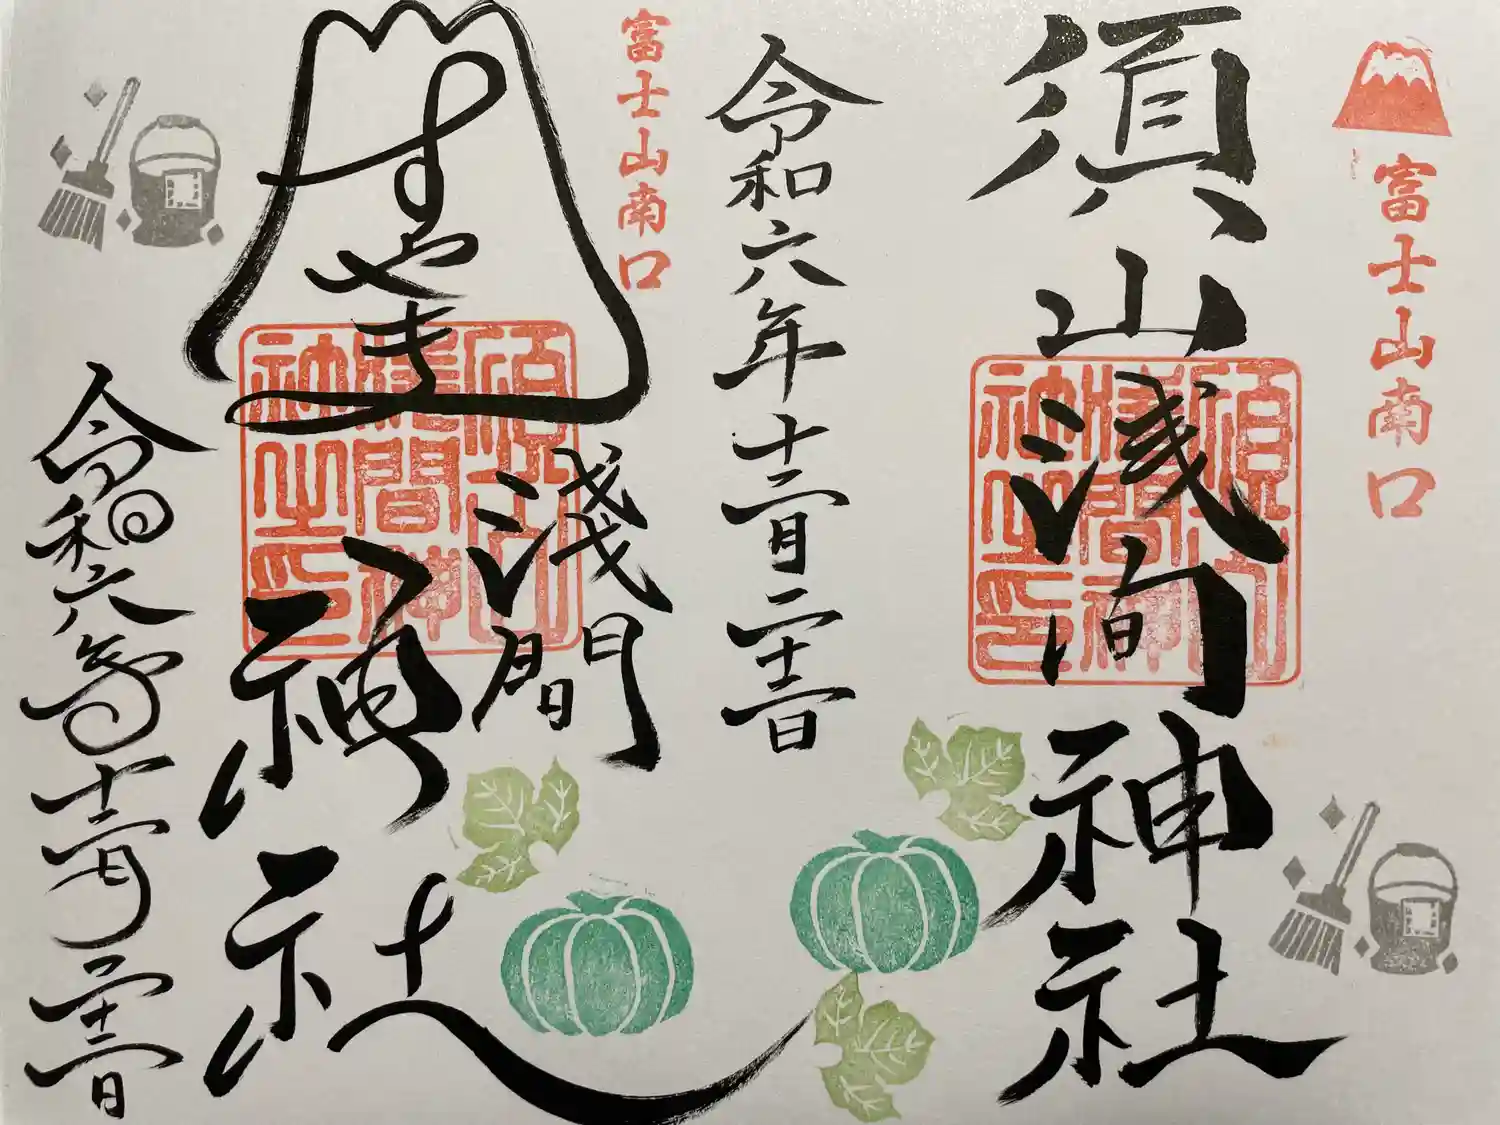 富士山南口
須山浅間神社
須山
淺間神
社之印
令和六年十二月二十二日
富士山南口
すやま
浅間
神社
須山
淺間神
社之印
令和六年十二月二十二日